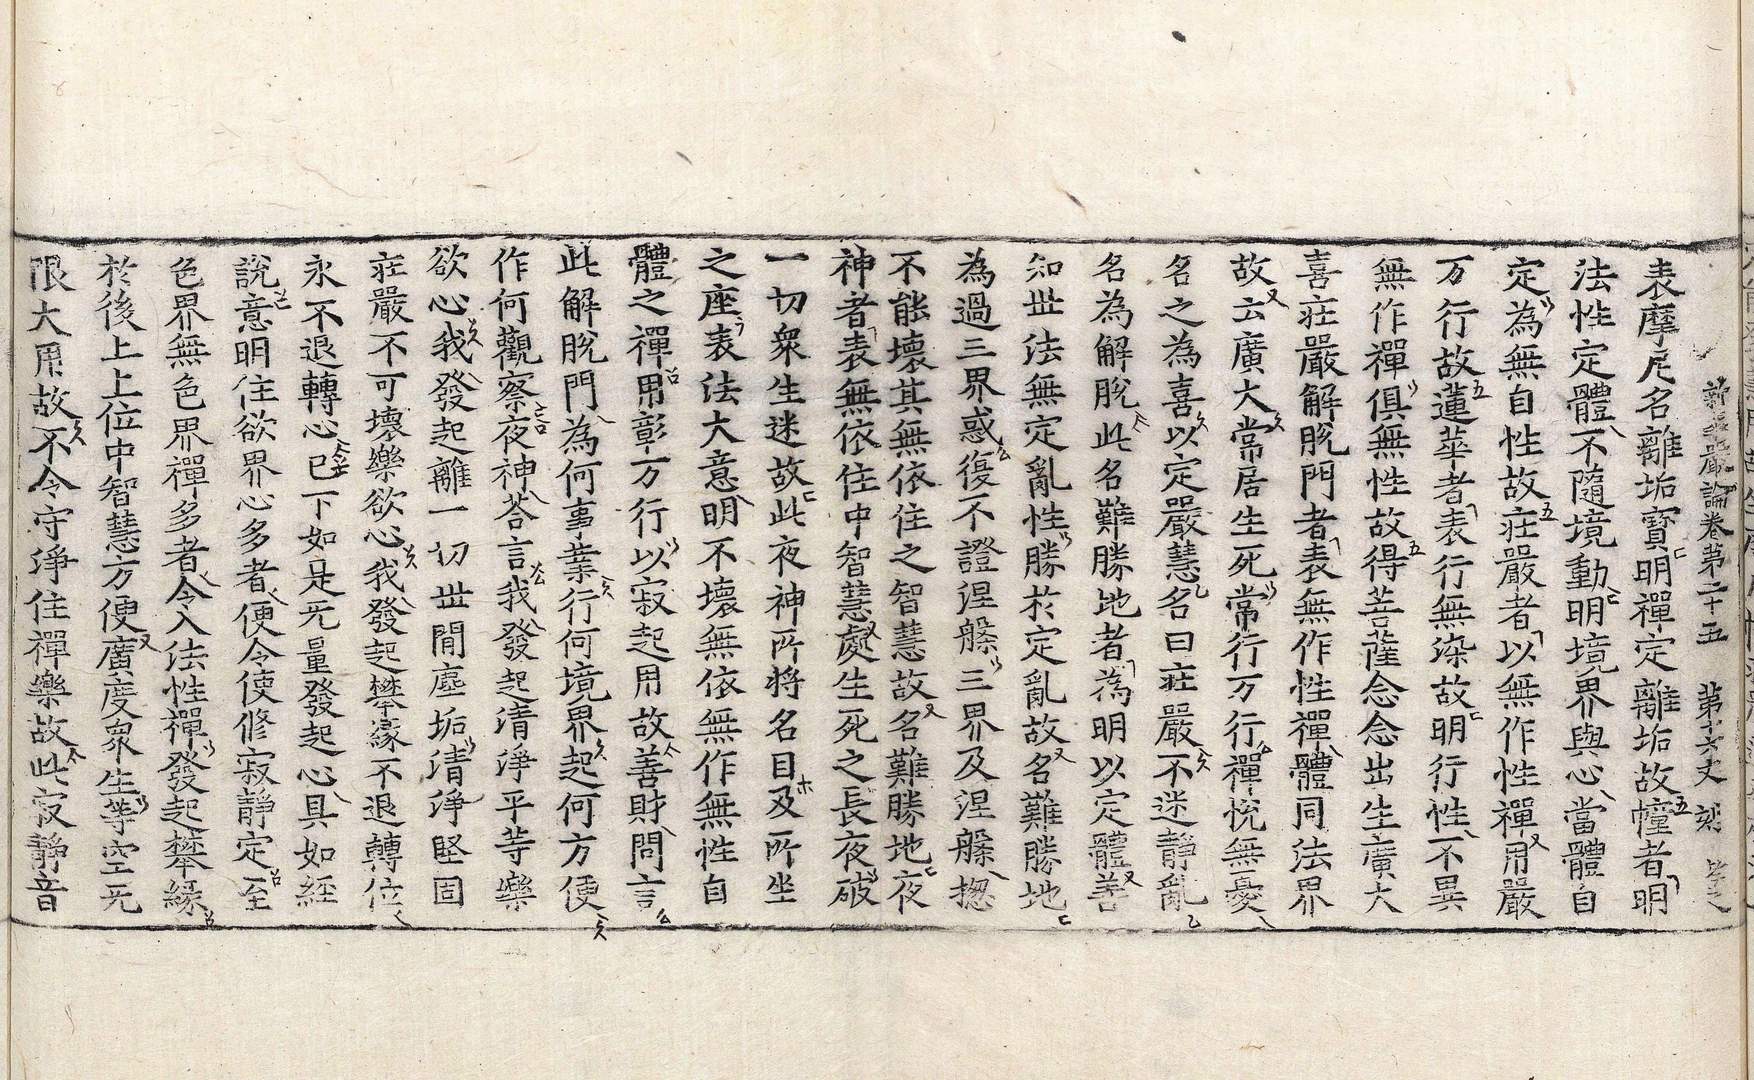 新華嚴論卷第二十五 第十六丈
表摩尼名離垢寶明禪定離垢故幢者明
法性定體不隨境動明境界與心當體自
定為無自性故莊嚴者以無作性禪用嚴
万行故蓮華者表行無染故明行性不異
無作禪俱無性故得菩薩念念出生廣大
喜莊嚴解脫門者表無作性禪體同法界
故云廣大常居生死常行万行禪悅無憂
名之為喜以定嚴慧名曰莊嚴不迷靜亂
名為解脫此名難勝地者為明以定體善
知世法無定亂性勝於定亂故名難勝地
為過三界惑復不證涅槃三界及涅槃揔
不能壞其無依住之智慧故名難勝地夜
神者表無依住中智慧處生死之長夜破
一切衆生迷故此夜神所將名目及所坐
之座表法大意明不壞無依無作無性自
體之禪用彰万行以寂起用故善財問言
此解脫門為何事業行何境界起何方便
作何觀察夜神荅言我發起清淨平等樂
欲心我發起離一切世間塵垢清淨堅固
莊嚴不可壞樂欲心我發起攀緣不退轉位
永不退轉心已下如是无量發起心具如經
說意明住欲界心多者便令使修寂靜定至
色界無色界禪多者令入法性禪發起攀緣
於後上上位中智慧方便廣度衆生等空无
限大用故不令守淨住禪樂故此寂靜音